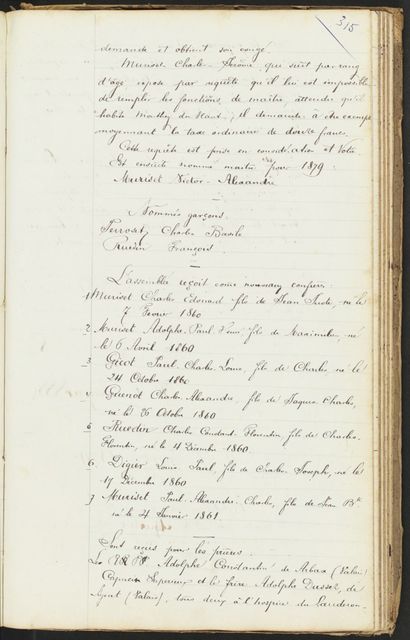 315
demande et obtient son congé.
Muriset Charles-Jérôme, qui suit par rang
d'âge, expose par requête qu'il lui est impossible
de remplir les fonctions de maître, attendu qu'il
habite ; il demande à être exempté
moyennant la taxe ordinaire de douze francs.
Cette requête est prise en considération et votée.
Est ensuite nommé maître pour 1879
Muriset Victor-Alexandre
Nommés garçons.
Perroset, Charles Basile
Ruedin François.
L'assemblée reçoit comme nouveaux confrères:
1 Muriset Charles Edouard fils de Jean , né le
7 Février 1860
2. Muriset Adolphe Paul fils de Maximilien, né
le 6 Avril 1860
3. Gicot Paul Charles Louis, fils de Charles né le
24 Octobre 1860
4 Guenot Charles Alexandre, fils de Jaques Charles,
né le 26 Octobre 1860
5 Ruedin Charles Constant Florentin fils de Charles
Florentin, né le 4 Décembre 1860.
6. Digier Louis Paul, fils de Charles Joseph, né le
17 Décembre 1860
7 Muriset Paul Alexandre Charles, fils de Jean Bte
né le 4 Janvier 1861.
Sont reçus pour les prières
Les Adolphe Constantin de Arbaz (Valais)
Capucin Supérieur et le frère Adolphe , de
Ayent (Valais), tous deux à l'hospice du Landeron.